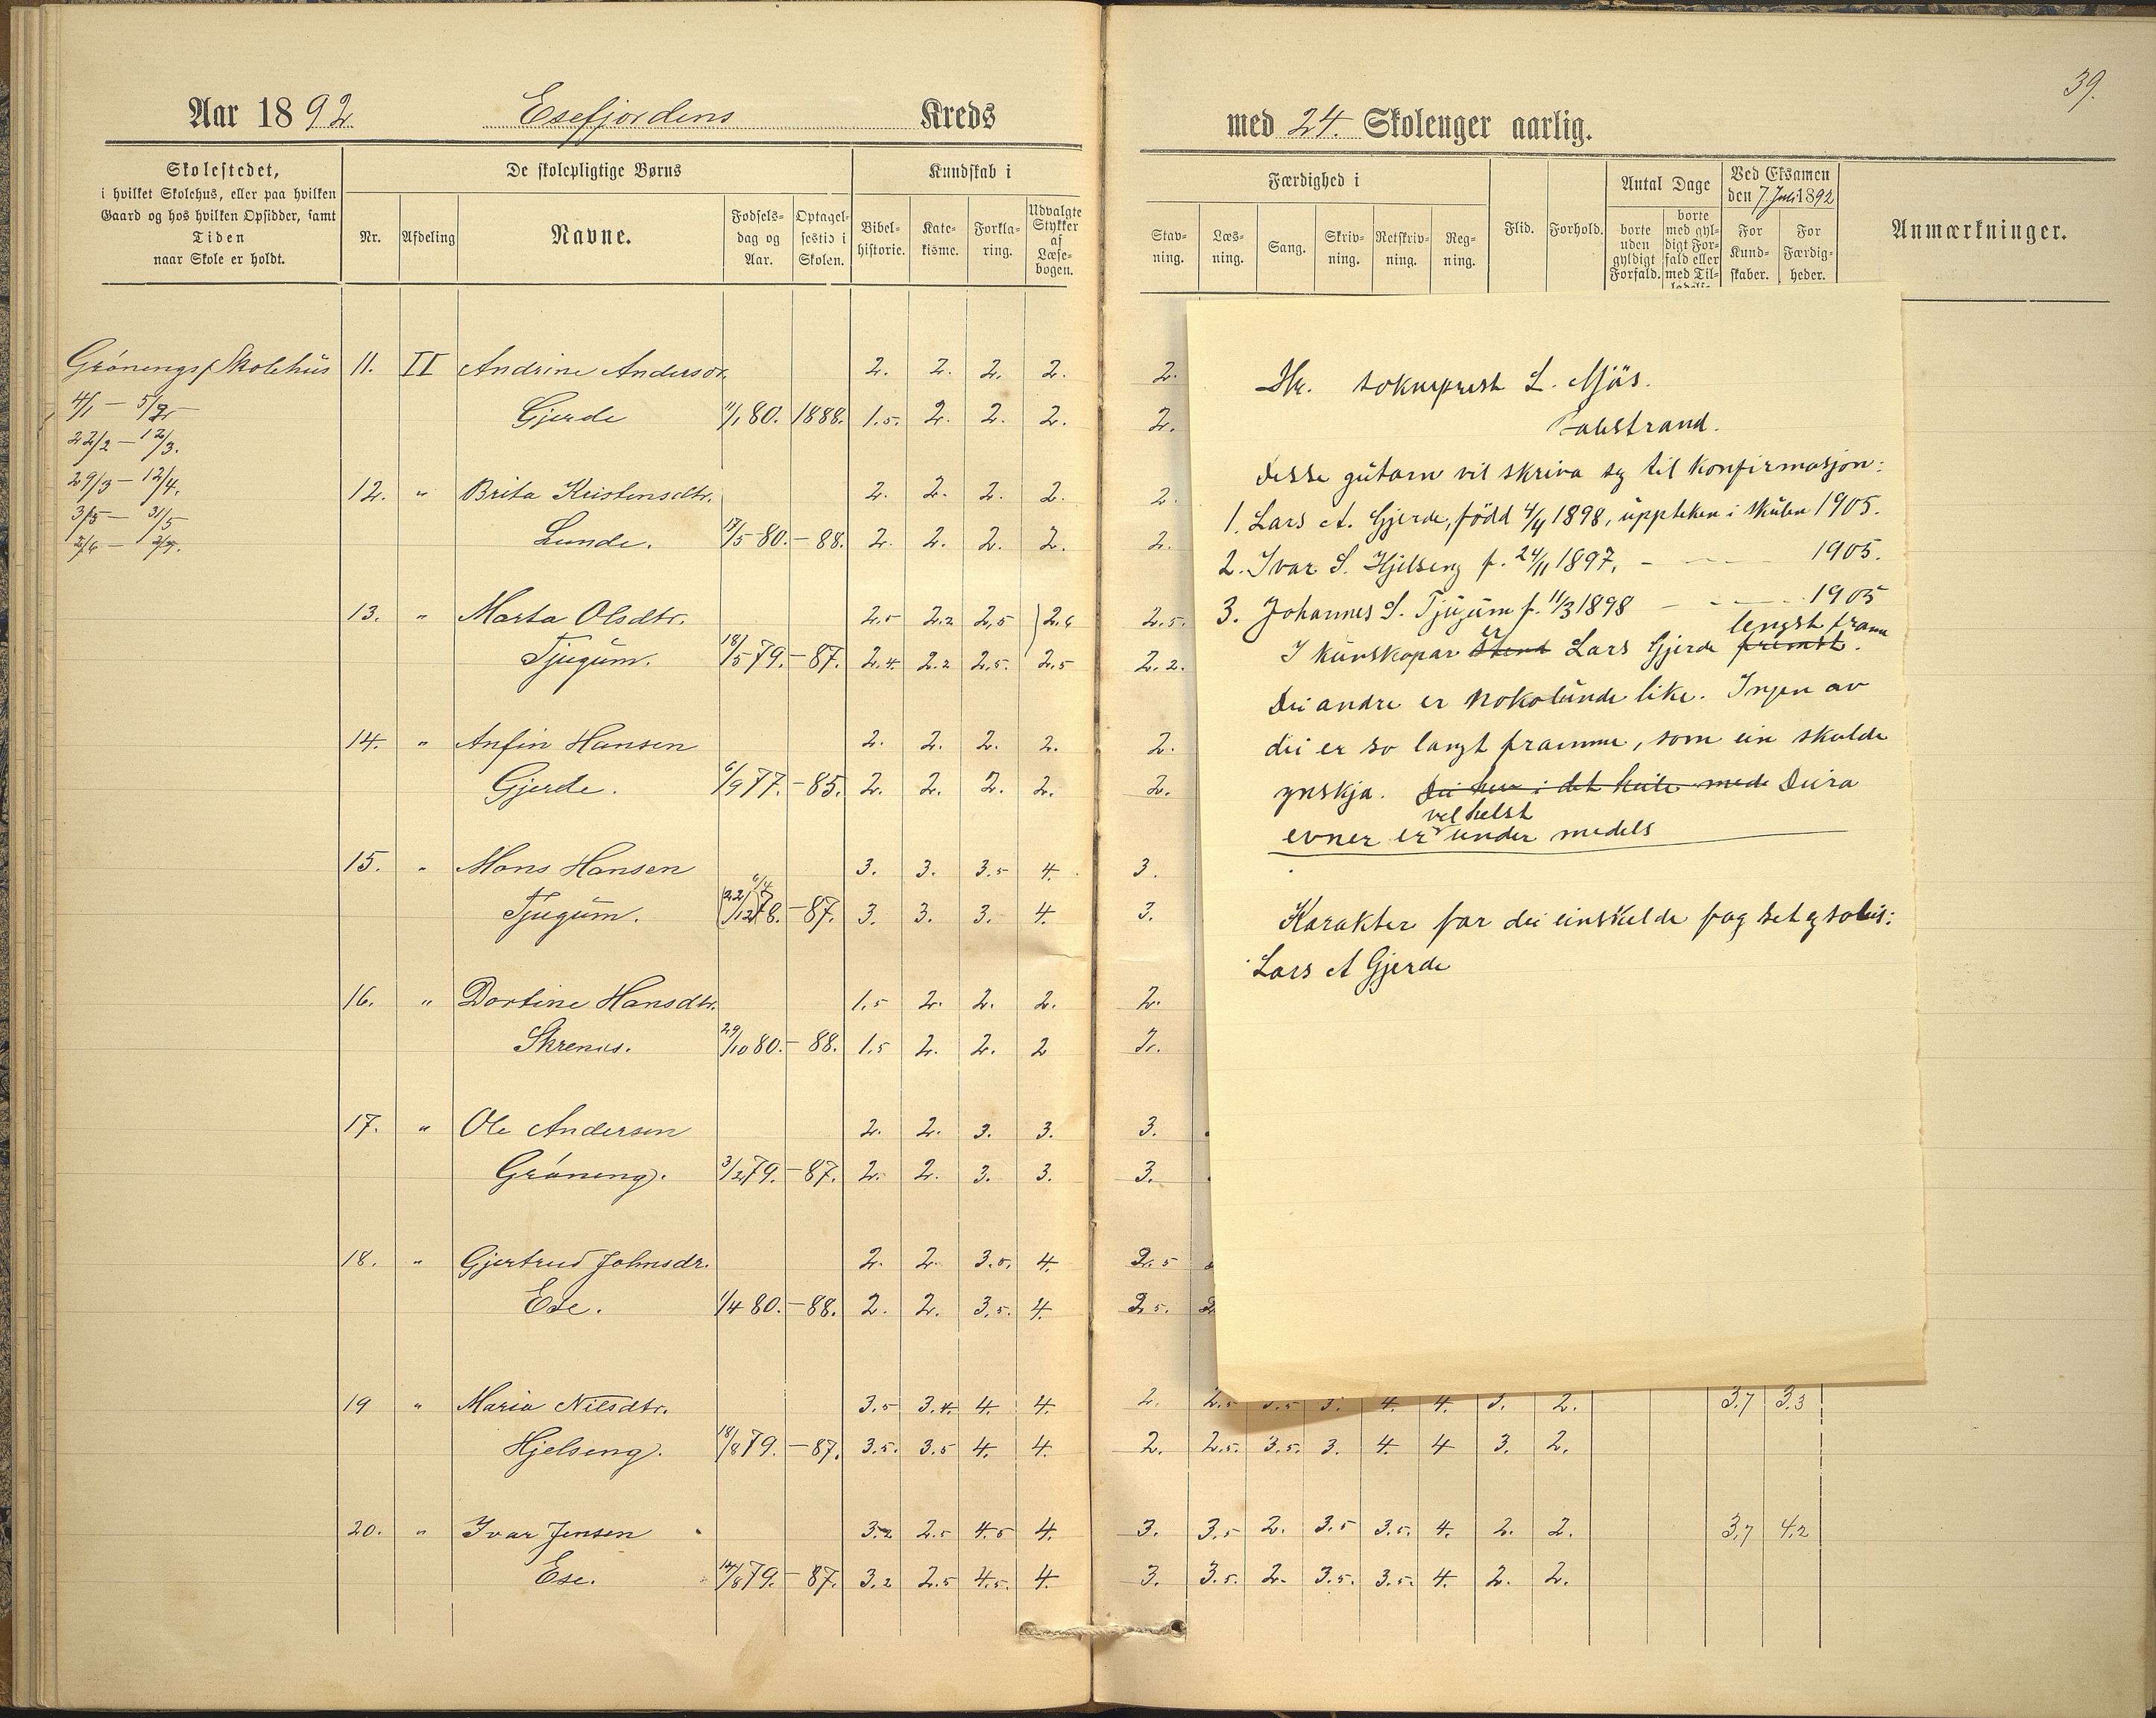 39.
Aar 1892 Esefjordens Kreds
med 24. Skoleuger aarlig.
Skolestedet,
i hvilket Skolehus, eller paa hvilken
Gaard og hos hvilken Opsidder, samt
Tiden
naar Skole er holdt.
De skolepligtige Børns
Nr. Afdeling Navne. Fødsels-dag og Aar. Optagel-sestid i Skolen.
Kundskab i
Bibel-historie. Kate-kisme. Forkla-ring. Udvalgte Stykker af Læse-bogen.
Færdighed i
Stav-ning. Læs-ning. Sang. Skriv-ning. Retskriv-ning. Reg-ning.
Flid. Forhold.
Antal Dage
borte uden gyldigt Forfald. borte med gyl-digt For-fald eller med Til-ladelse
Ved Eksamen
den 7. Juli 1892
For Kund-skaber. For Færdig-heder.
Anmærkninger.
Grønengs Skolehus 11. II Andrine Andersdr. 2. 2. 2. 2. 2.
4/1 — 5/2 Gjerde 1/1 80. 1888. 1.5. 2. 2. 2. 2.
22/2 — 12/3.
29/3 — 12/4. 12. " Brita Kristensdtr. 2. 2. 2. 2. 2.
3/5 — 31/5 Lunde. 17/5 80. – 88. 2. 2. 2. 2. 2.
13. " Marta Olsdtr. 2.5 2.2 2,5 2.6 2.5.
Tjugum. 18/5 79. – 87. 2.4. 2.2 2.5. 2,5 2.2.
14. " Anfin Hansen 2. 2. 2. 2. 2.
Gjerde. 6/9 77. – 85. 2. 2. 2. 2. 2.
15. " Mons Hansen 3. 3. 3.5 4. 3.
Tjugum. 22/12 78. – 87. 3. 3. 3. 4. 3.
16. " Dortine Hansdtr. 1.5 2. 2. 2. 2.
Skrenes. 29/10 80. – 88. 1.5 2. 2. 2 2.
17. " Ole Andersen 2. 2. 3. 3. 3.
Grøneng. 3/2 79. – 87. 2. 2. 3. 3. 3.
18. " Gjertrud Johnsdr. 2. 2. 3.5. 4. 2.5
Ese. 1/4 80. – 88. 2. 2. 3.5. 4. 2.5.
19 " Maria Nilsdtr. 3.5 3.4. 4. 4. 2. 2.5 3.5 3. 4. 4. 3. 2. 3,7 3.3
Hjelseng. 18/8 79. – 87. 3.5. 3.5 4. 4. 2. 2.5. 3.5. 3. 4. 4 3. 2.
20. " Ivar Jensen 3.2 2.5 4.5 4. 3. 3.5 2. 3.5 3.5. 4. 2. 2. 3,7 4.2
Ese. 14/8 79. – 87. 3.2 2.5 4.5. 4. 3. 3.5. 2. 3.5. 3.5. 4. 2. 2.
Hr. sokneprest L. Mjås.
Balestrand.
Desse gutarn vil skriva seg til konfirmasjon:
1. Lars A. Gjerde, född 4/4 1898, uppteken i skulen 1905.
2. Ivar S. Hjelseng f. 24/11 1897, – — 1905.
3. Johannes S. Tjugum f. 11/3 1898 – — 1905
er lengst fram
I kunskapar stend Lars Gjerde fremst.
Dei andre er nokolunde like. Ingen av
dei er so langt framme, som ein skulde
ynskja. Dei her i det heile med Deira
vel helst
evner er under medels
Karakter for dei einskelde fag set eg soleis:
Lars A Gjerde